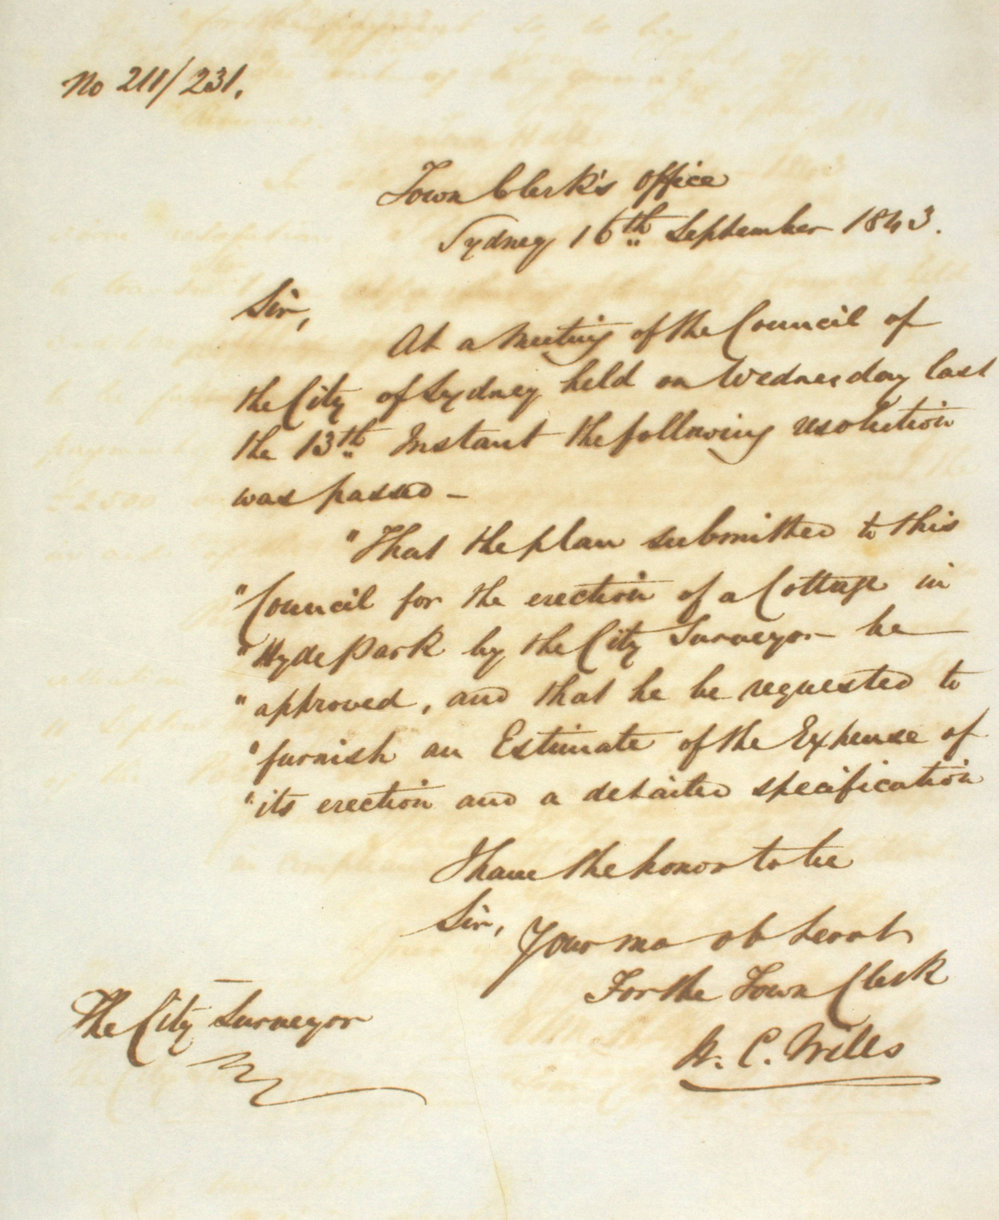 No 211/231.
Town Clerk's Office
Sydney 16th September 1843.
Sir,
At a Meeting of the Council of
the City of Sydney held on Wednesday last
the 13th Instant the following resolution
was passed –
"That the plan submitted to this
"Council for the erection of a Cottage in
"Hyde Park by the City Surveyor be
"approved, and that he be requested to
"furnish an Estimate of the Expense of
"its erection and a detailed specification
I have the honor to be
Sir,
Your mo ob Servt
For the Town Clerk
The City Surveyor
H. C. Wills